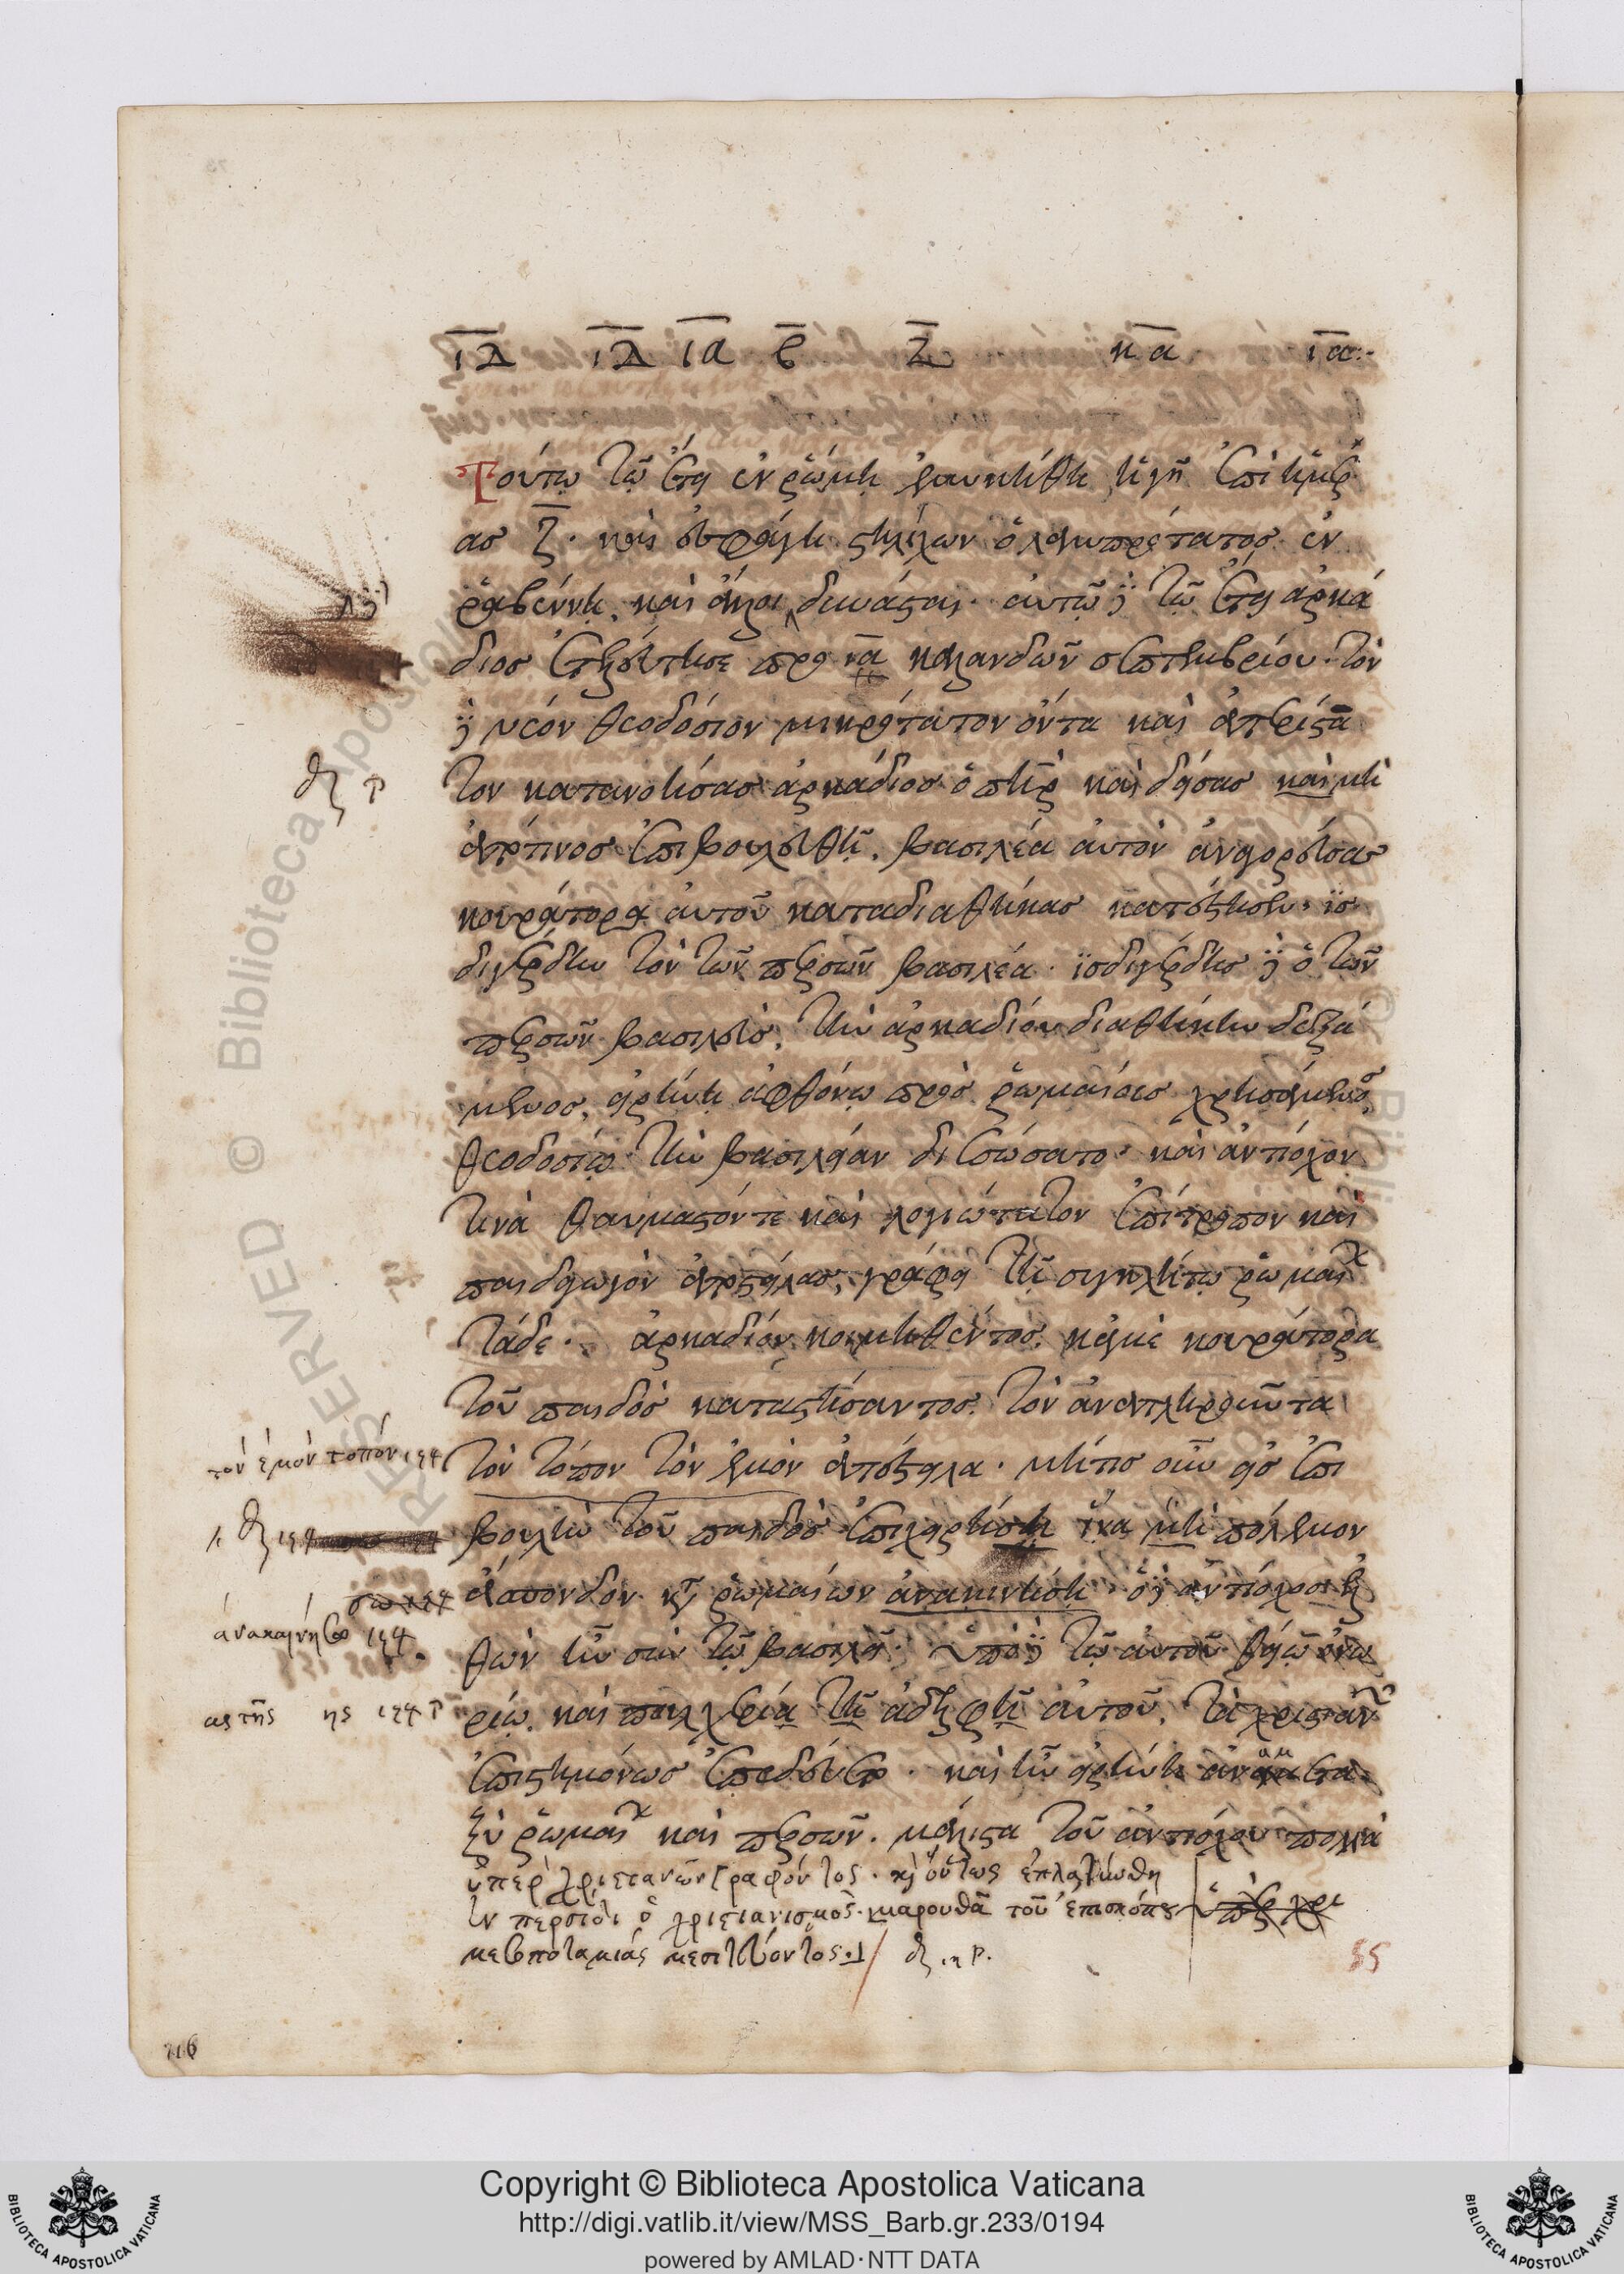 ιδ ιδ ια ε ζ κα ια
Τούτω τῶ ἔτει ἐν ῥώμη ἐμυκήθη ἡ γῆ ἐπὶ ἡμέρ
ας ζ. καὶ ἐσφάγη στελίχων ὁ λαμπρότατος ἐν
ῥαβέννη, καὶ ἄλλοι δικάσται. αὐτῶ δὲ τῶ ἔτει ἀρκά
διος ἐτελεύτησε πρὸ ια καλανδῶν σεπτεμβρίου. τὸν
δὲ νέον θεοδόσιον μικρότατον ὄντα καὶ ἀπερίστα
τον κατανοήσας ἀρκάδιος ὁ πατὴρ καὶ δείσας καὶ μὴ
ἀπό τινος ἐπιβουλευθῆ, βασιλέα αὐτὸν ἀναγορεύσας
κουράτορα αὐτοῦ κατα διαθήκας κατέστησεν ϊσ
διγέρδην τὸν τῶν περσῶν βασιλέα. ϊσδιγέρδης δὲ ὁ τῶν
περσῶν βασιλεὺς, τὴν ἀρκαδίου διαθήκην δεξά
μενος, εἰρήνη ἀφθόνω πρὸς ῥωμαίους χρησάμενος
θεοδοσίω τὴν βασιλείαν διεσώσατο. καὶ ἀντίοχον
τινὰ θαυμαστόν τε καὶ λογιώτατον ἐπίτροπον καὶ
παιδαγωγὸν ἀποστείλας, γράφει τῆ συγκλήτω ῥωμαϊκ
τάδε. ἀρκαδίου κοιμηθέντος, κἀμὲ κουράτορα
τοῦ παιδὸς καταστήσαντος, τὸν ἀναπληροῦντα
τὸν τόπον τὸν ἐμὸν ἀπέστειλα. μή τις οὖν εἰς ἐπι
βουλὴν τοῦ παιδὸς ἐπιχειρήση ἵνα μὴ πόλεμον
ἄσπονδον κατὰ ῥωμαίων ἀνακινήση. ὁ δὲ ἀντίοχος ἐλ
θὼν ἦν σὺν τῶ βασιλεῖ. ὑπὸ δὲ τῶ αὐτοῦ θείω ὀνω
ρίω, καὶ πουλχερία τῆ ἀδελφῆ αὐτοῦ, τὰ χριστιαν
ἐπιστημόνως ἐπεδεύετο. καὶ ἦν εἰρήνη ἀνὰ μετα
ξὺ ῥωμαϊκ καὶ περσῶν. μάλιστα τοῦ ἀντιόχου πολλὰ
ὑπὲρ χριστιανῶν γραφόντος. καὶ οὕτως ἐπλατύνθη
ἐν περσίδι ὁ χριστιανισμός. μαρουθᾶ τοῦ ἐπισκόπου
μεσοποταμίας μεσιτεύοντος.
τὸν ἐμὸν τοπόν
ἀνακαινήσω
ας τῆς ης
85
716
Copyright © Biblioteca Apostolica Vaticana
http://digi.vatlib.it/view/MSS_Barb.gr.233/0194
powered by AMLAD·NTT DATA
BIBLIOTECA APOSTOLICA VATICANA
BIBLIOTECA APOSTOLICA VATICANA